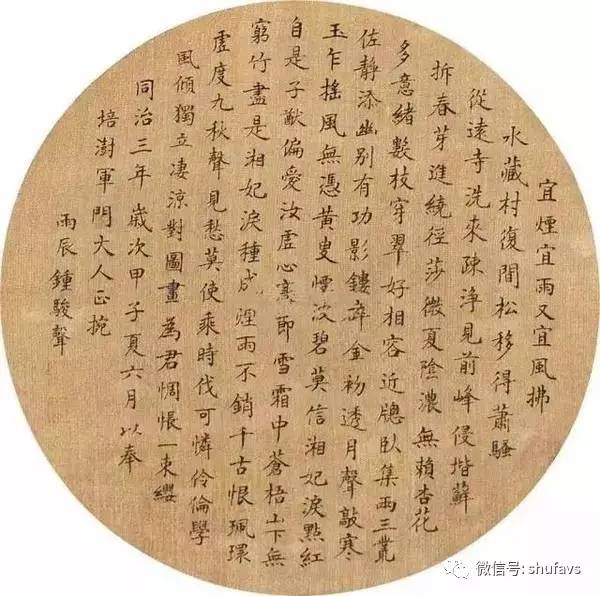 宜煙宜雨又宜風拂
水藏村復間松移得蕭騷
從遠寺洗來疎淨見前峰侵堦蘚
拆春芽迸繞徑莎微夏陰濃無賴杏花
多意緒數枝穿翠好相容近牕臥集兩三叢
佐靜添幽別有功影鏤碎金初透月聲敲寒
玉乍搖風無憑黃叟煙波碧莫信湘妃淚點紅
自是子猷偏愛汝虛心寒節雪霜中蒼梧山下無
窮竹盡是湘妃淚種成煙雨不銷千古恨珮環
虛度九秋聲見愁莫使乘時伐可憐伶倫學
風傾獨立淒涼對圖畫為君惆悵一束纓
同治三年歲次甲子夏六月以奉
培澍軍門大人正
雨辰鍾駿聲
微信号: shufavs